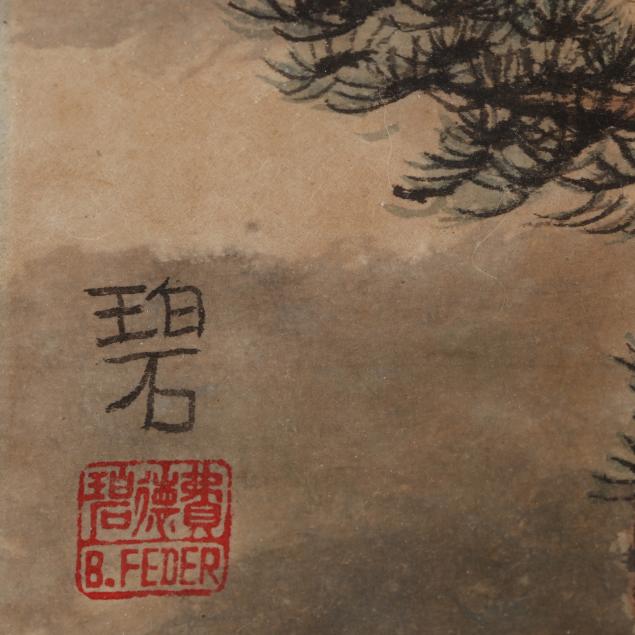 碧
費德碧
B. FEDER